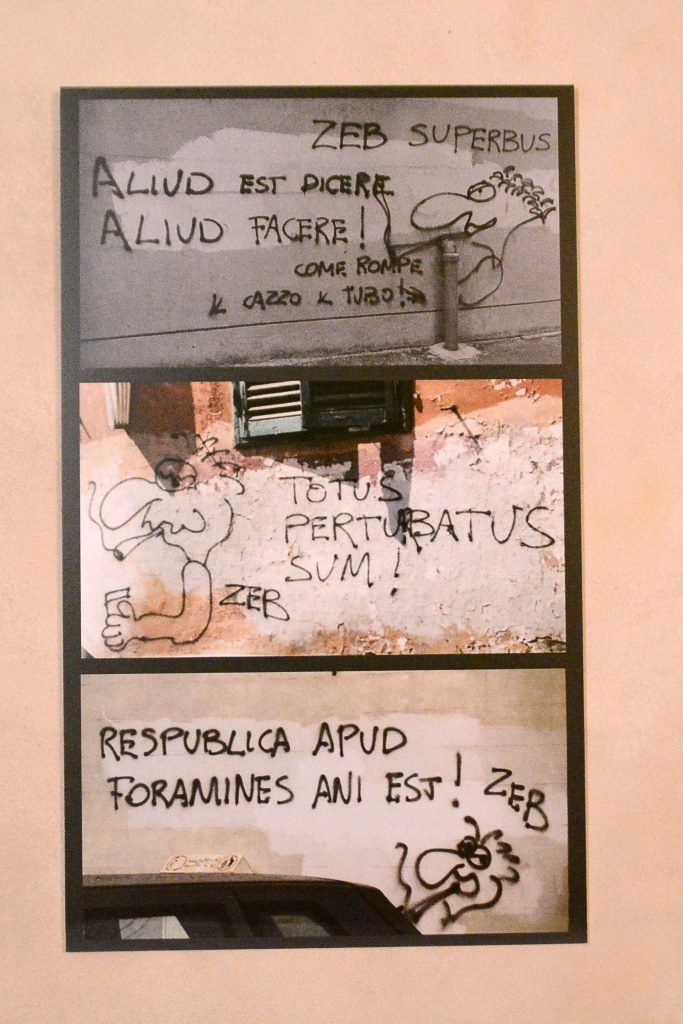 ZEB SUPERBUS
ALIUD EST DICERE
ALIUD FACERE!
COME ROMPE
K CAZZO K TUBO!
TOTUS
PERTURBATUS
SUM!
ZEB
RESPUBLICA APUD
FORAMINES ANI EST! ZEB